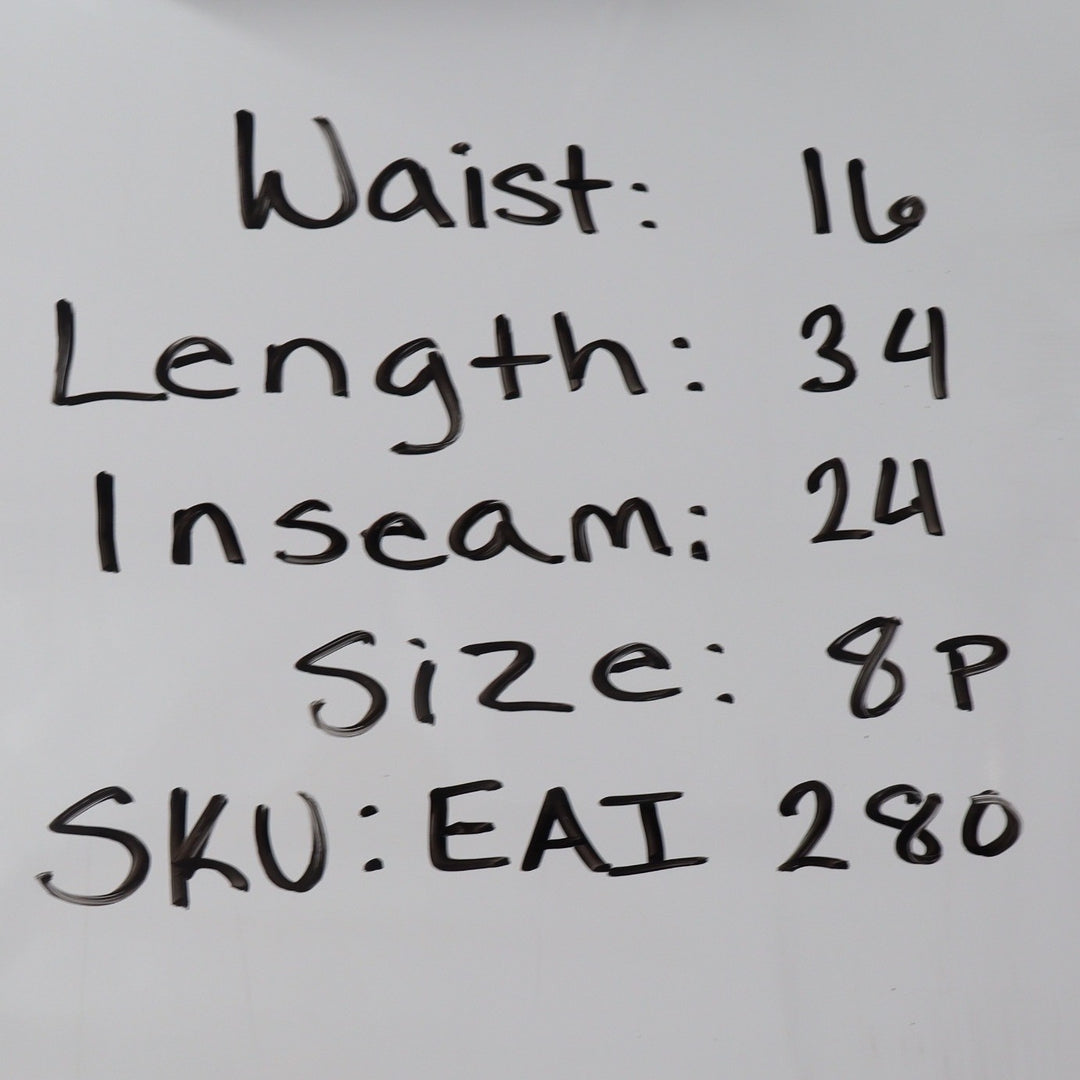 Waist: 16
Length: 34
Inseam: 24
Size: 8P
SKU: EAI 280